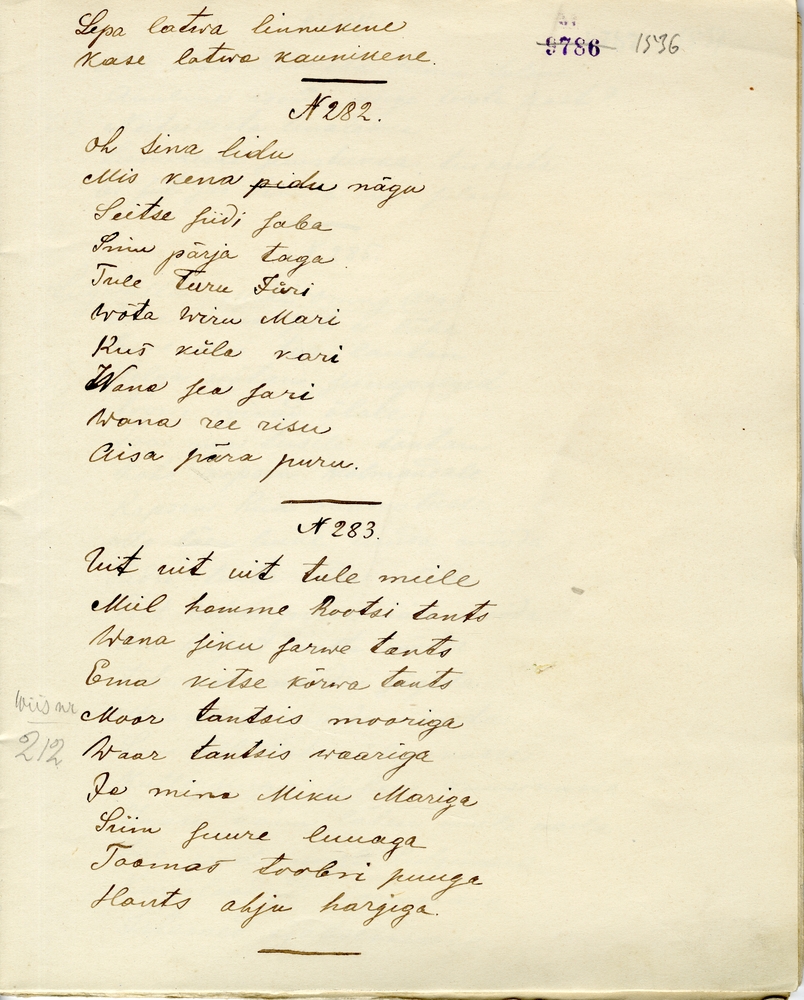 Lepa latwa linnukene
9786 1536
Kase latwa kaunikene.
N 282.
Oh sina lidu
Mis kena pidu nägu
Seitse siidi saba
Sinu pärja taga
Tule Turu Jüri
Wõta Wiru Mari
Kus küla kari
Wana sea sari
Wana ree risu
Aisa pära puru.
N 283.
Uit uit uit tule meile
Meil homme Rootsi tants
Wana siku sarwe tants
Ema kitse kõrwa tants
Wiis nr
Moor tantsis mooriga
212
Waar tantsis waariga
Ja mina Miku Mariga
Siim suure luuaga
Toomas toobri puuga
Hants ahju hargiga.